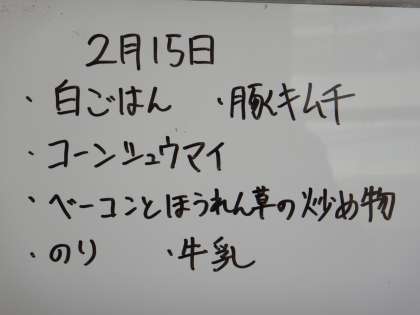 2月15日
・白ごはん ・豚キムチ
・コーンシュウマイ
・ベーコンとほうれん草の炒め物
・のり ・牛乳